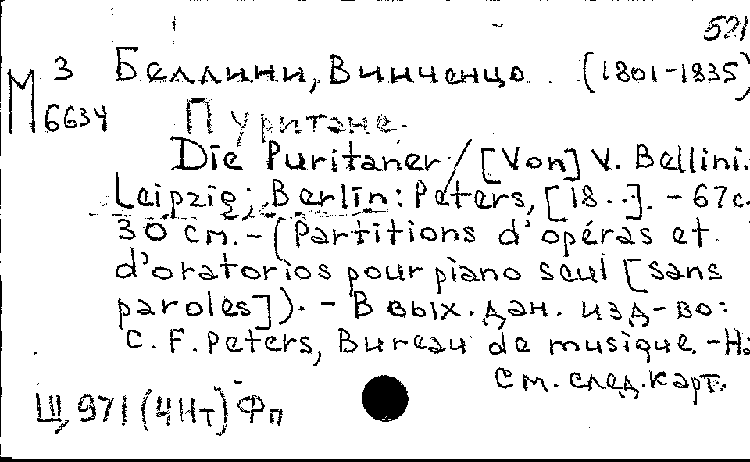 521
М 3 Беллини, Винченцо. (1801-1835)
6634
Пуритане.
Die Puritaner / [Von] V. Bellini.
Leipzig; Berlin: Peters, [18..]. - 67 с.
30 см. - (Partitions d'opéras et
d'oratorios pour piano seul [sans
paroles]). - В вых. дан. изд-во:
C. F. Peters, Bureau de musique. - На
См. след. карт.
Щ 971 (4Нт) Фп